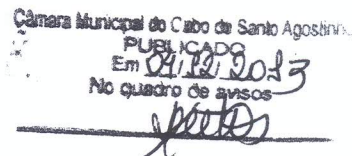 Câmara Municipal do Cabo de Santo Agostinho
PUBLICADO
Em 04/12/2013
No quadro de avisos